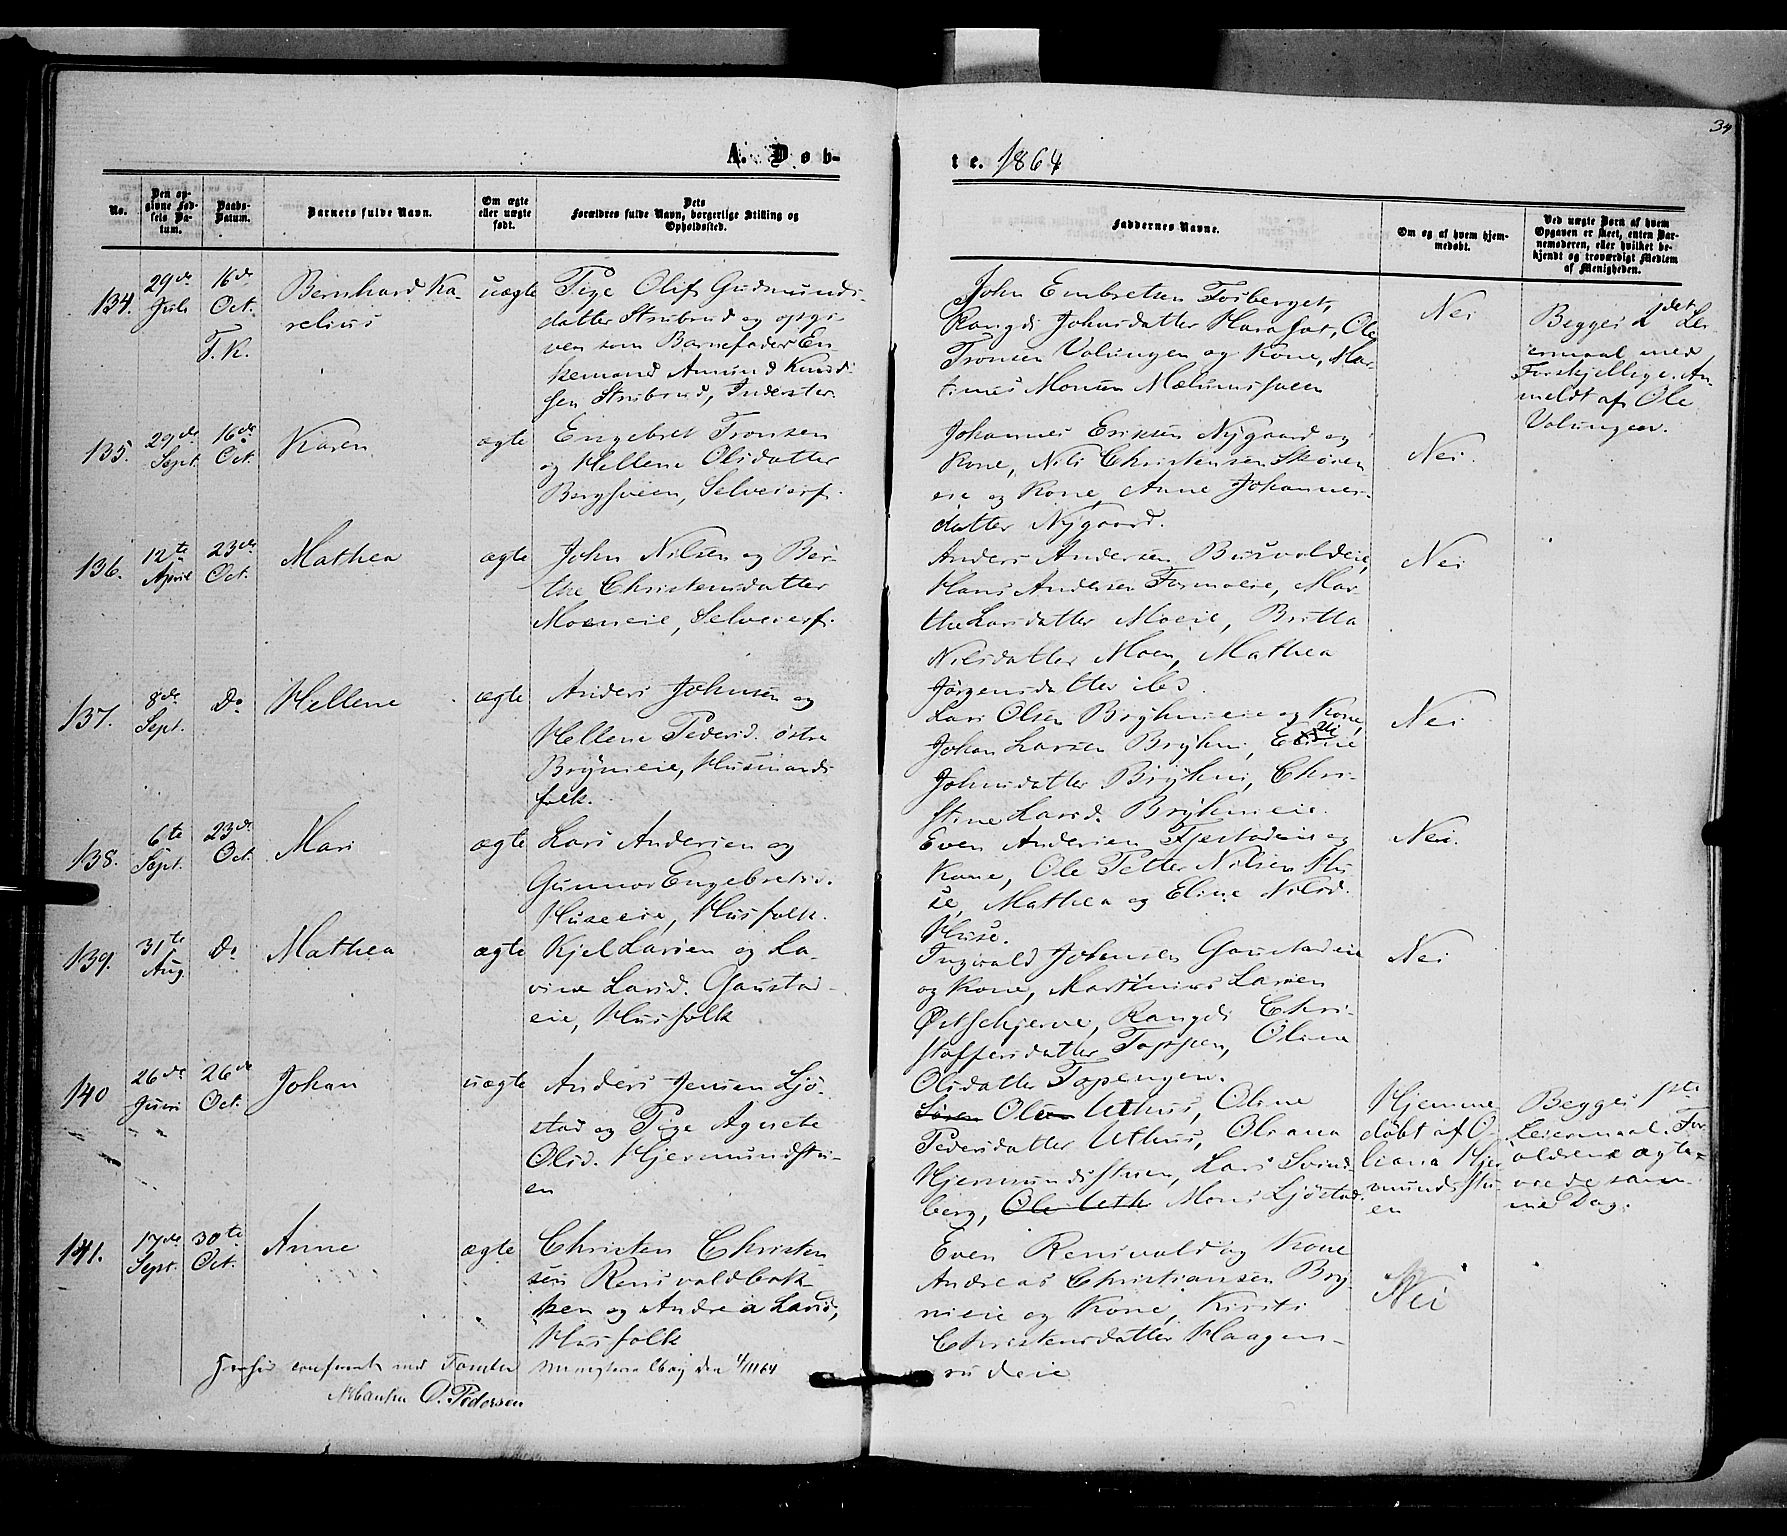 34
A. Døb-
te. 1864
No.
Den op-
givne Fød-
sels Da-
tum.
Daabs-
Datum.
Barnets fulde Navn.
Om ægte
eller uægte
født.
Dets
Forældres fulde Navn, borgerlige Stilling og
Opholdssted.
Faddernes Navne.
Om og af hvem hjem-
medøbt.
Ved uægte Børn af hvem
Opgaven er skeet, enten Bar-
nemoderen, eller hvilket be-
kjendt og troværdigt Medlem
af Menigheden.
134.
29de
Juli
16de
Oct.
T. K.
Bernhard Ka-
relius
uægte
Pige Olif Gudmunds-
datter Strubrud og opgi-
ven som Barnefader En-
kemand Amund Knud-
sen Strubrud, Inderster
John Embretsen Fosberget,
Rangdi Johnsdatter Ole
Tronsen Volungen og Kone, Mar-
Monsen
Nei
Begges 2det Lei-
ermaal med
Forskjellige. An-
meldt af Ole
Volungen.
135.
29de
Sept.
16de
Oct.
Karen
ægte
Engebret Tronsen
og Hellene Olsdatter
Bergsveen, Selveierf.
Johannes Eriksen Nygaard og
Kone, Nils Christensen Skøien
eie og Kone, Anne Johannes-
datter Nygaard.
Nei
136.
12te
April
23de
Oct.
Mathea
ægte
John Nilsen og Ber-
the Christensdatter
Moeneie, Selveierf.
Anders Andersen Busvoldeie,
Hans Andersen Formoeie, Mar-
the Larsdatter Moeie, Britta
Nilsdatter Moen, Mathea
Jørgensdatter ibd.
Nei
137.
8de
Sept.
Do
Hellene
ægte
Anders Johnsen og
Hellene Pedersd. østre
Brynieie, Husmands-
folk.
Lars Olsen Bryhnieie og Kone,
Johan Larsen Bryhni, Eline
Johnsdatter Bryhni, Chri-
stine Larsd. Bryhnieie.
Nei
138.
6te
Sept.
23de
Oct.
Mari
ægte
Lars Andersen og
Gunnor Engebretsd.
Huseeie, Husfolk.
Even Andersen Fjestadeie og
Kone, Ole Petter Nilsen Hu-
se, Mathea og Eline Nilsd.
Huse.
Nei.
139.
31te
Aug.
Do
Mathea
ægte
Kjel Larsen og La-
vine Larsd. Gaustad-
eie, Husfolk
Ingvald Johansen Gaustadeie
og Kone, Marthinus Larsen
Østschjerve, Rangdi Chri-
stoffersdatter Toppen, Olava
Olsdatter Topengen.
Nei
140
26de
Juni
26de
Oct.
Johan
uægte
Anders Jensen Ljø-
stad og Pige Agnete
Olsd. Hjermundstu-
en
Søren Olsen Uthus, Oline
Pedersdatter Uthus, Oleana
Hjermundstuen, Lars Svinds-
berg, Ole Uth Mons Ljøstad
Hjemme
døbt af O-
liana Hjer
mundstu-
en
Begges 1ste
Leiermaal. For-
ældrene ægte-
viede sam-
me Dag.
141.
17de
Sept.
30te
Oct.
Anne
ægte
Christen Christen-
sen Rensvoldbak-
ken og Andrea Larsd,
Husfolk
Even Rensvold og Kone
Andreas Christiansen Bry-
nieie og Kone, Kirsti
Christensdatter Haagen-
rudeie
Nei
confereret med Tomter Ministerialbog den 4/11 64
O. Pedersen